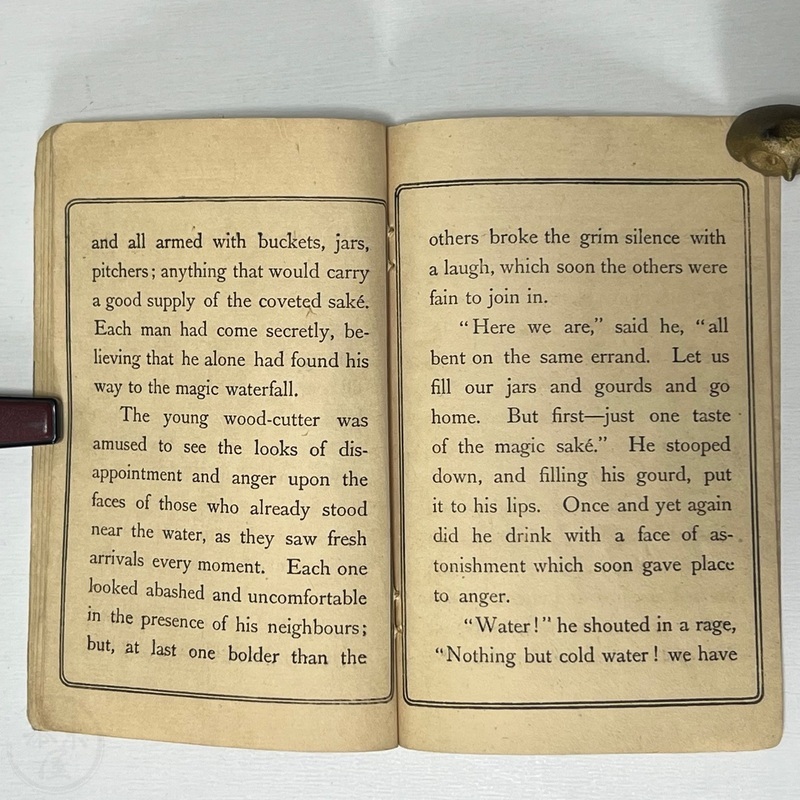 and all armed with buckets, jars,
pitchers; anything that would carry
a good supply of the coveted saké.
Each man had come secretly, be-
lieving that he alone had found his
way to the magic waterfall.
The young wood-cutter was
amused to see the looks of dis-
appointment and anger upon the
faces of those who already stood
near the water, as they saw fresh
arrivals every moment. Each one
looked abashed and uncomfortable
in the presence of his neighbours;
but, at last one bolder than the
others broke the grim silence with
a laugh, which soon the others were
fain to join in.
“Here we are,” said he, “all
bent on the same errand. Let us
fill our jars and gourds and go
home. But first—just one taste
of the magic saké.” He stooped
down, and filling his gourd, put
it to his lips. Once and yet again
did he drink with a face of as-
tonishment which soon gave place
to anger.
“Water!” he shouted in a rage,
“Nothing but cold water! we have